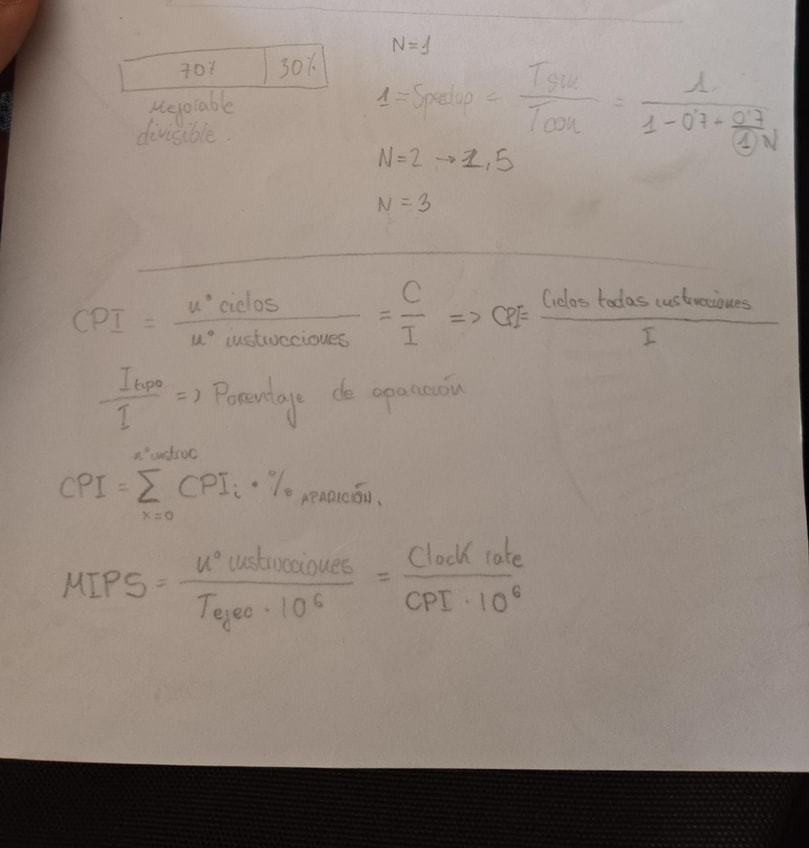 70% 30%
Mejorable
divisible.
N=1
1 = Speedup = Tsin / Tcon = 1 / (1 - 0'7 - 0'7 / 1 N)
N=2 → 1,5
N = 3
CPI = nº ciclos / nº instrucciones = C / I => CPI = Ciclos todas instrucciones / I
I tipo / I => Porcentaje de aparición
nº instruc
CPI = Σ CPIi · % APARICIÓN.
x=0
MIPS = nº instrucciones / Tejec · 10^6 = Clock rate / CPI · 10^6